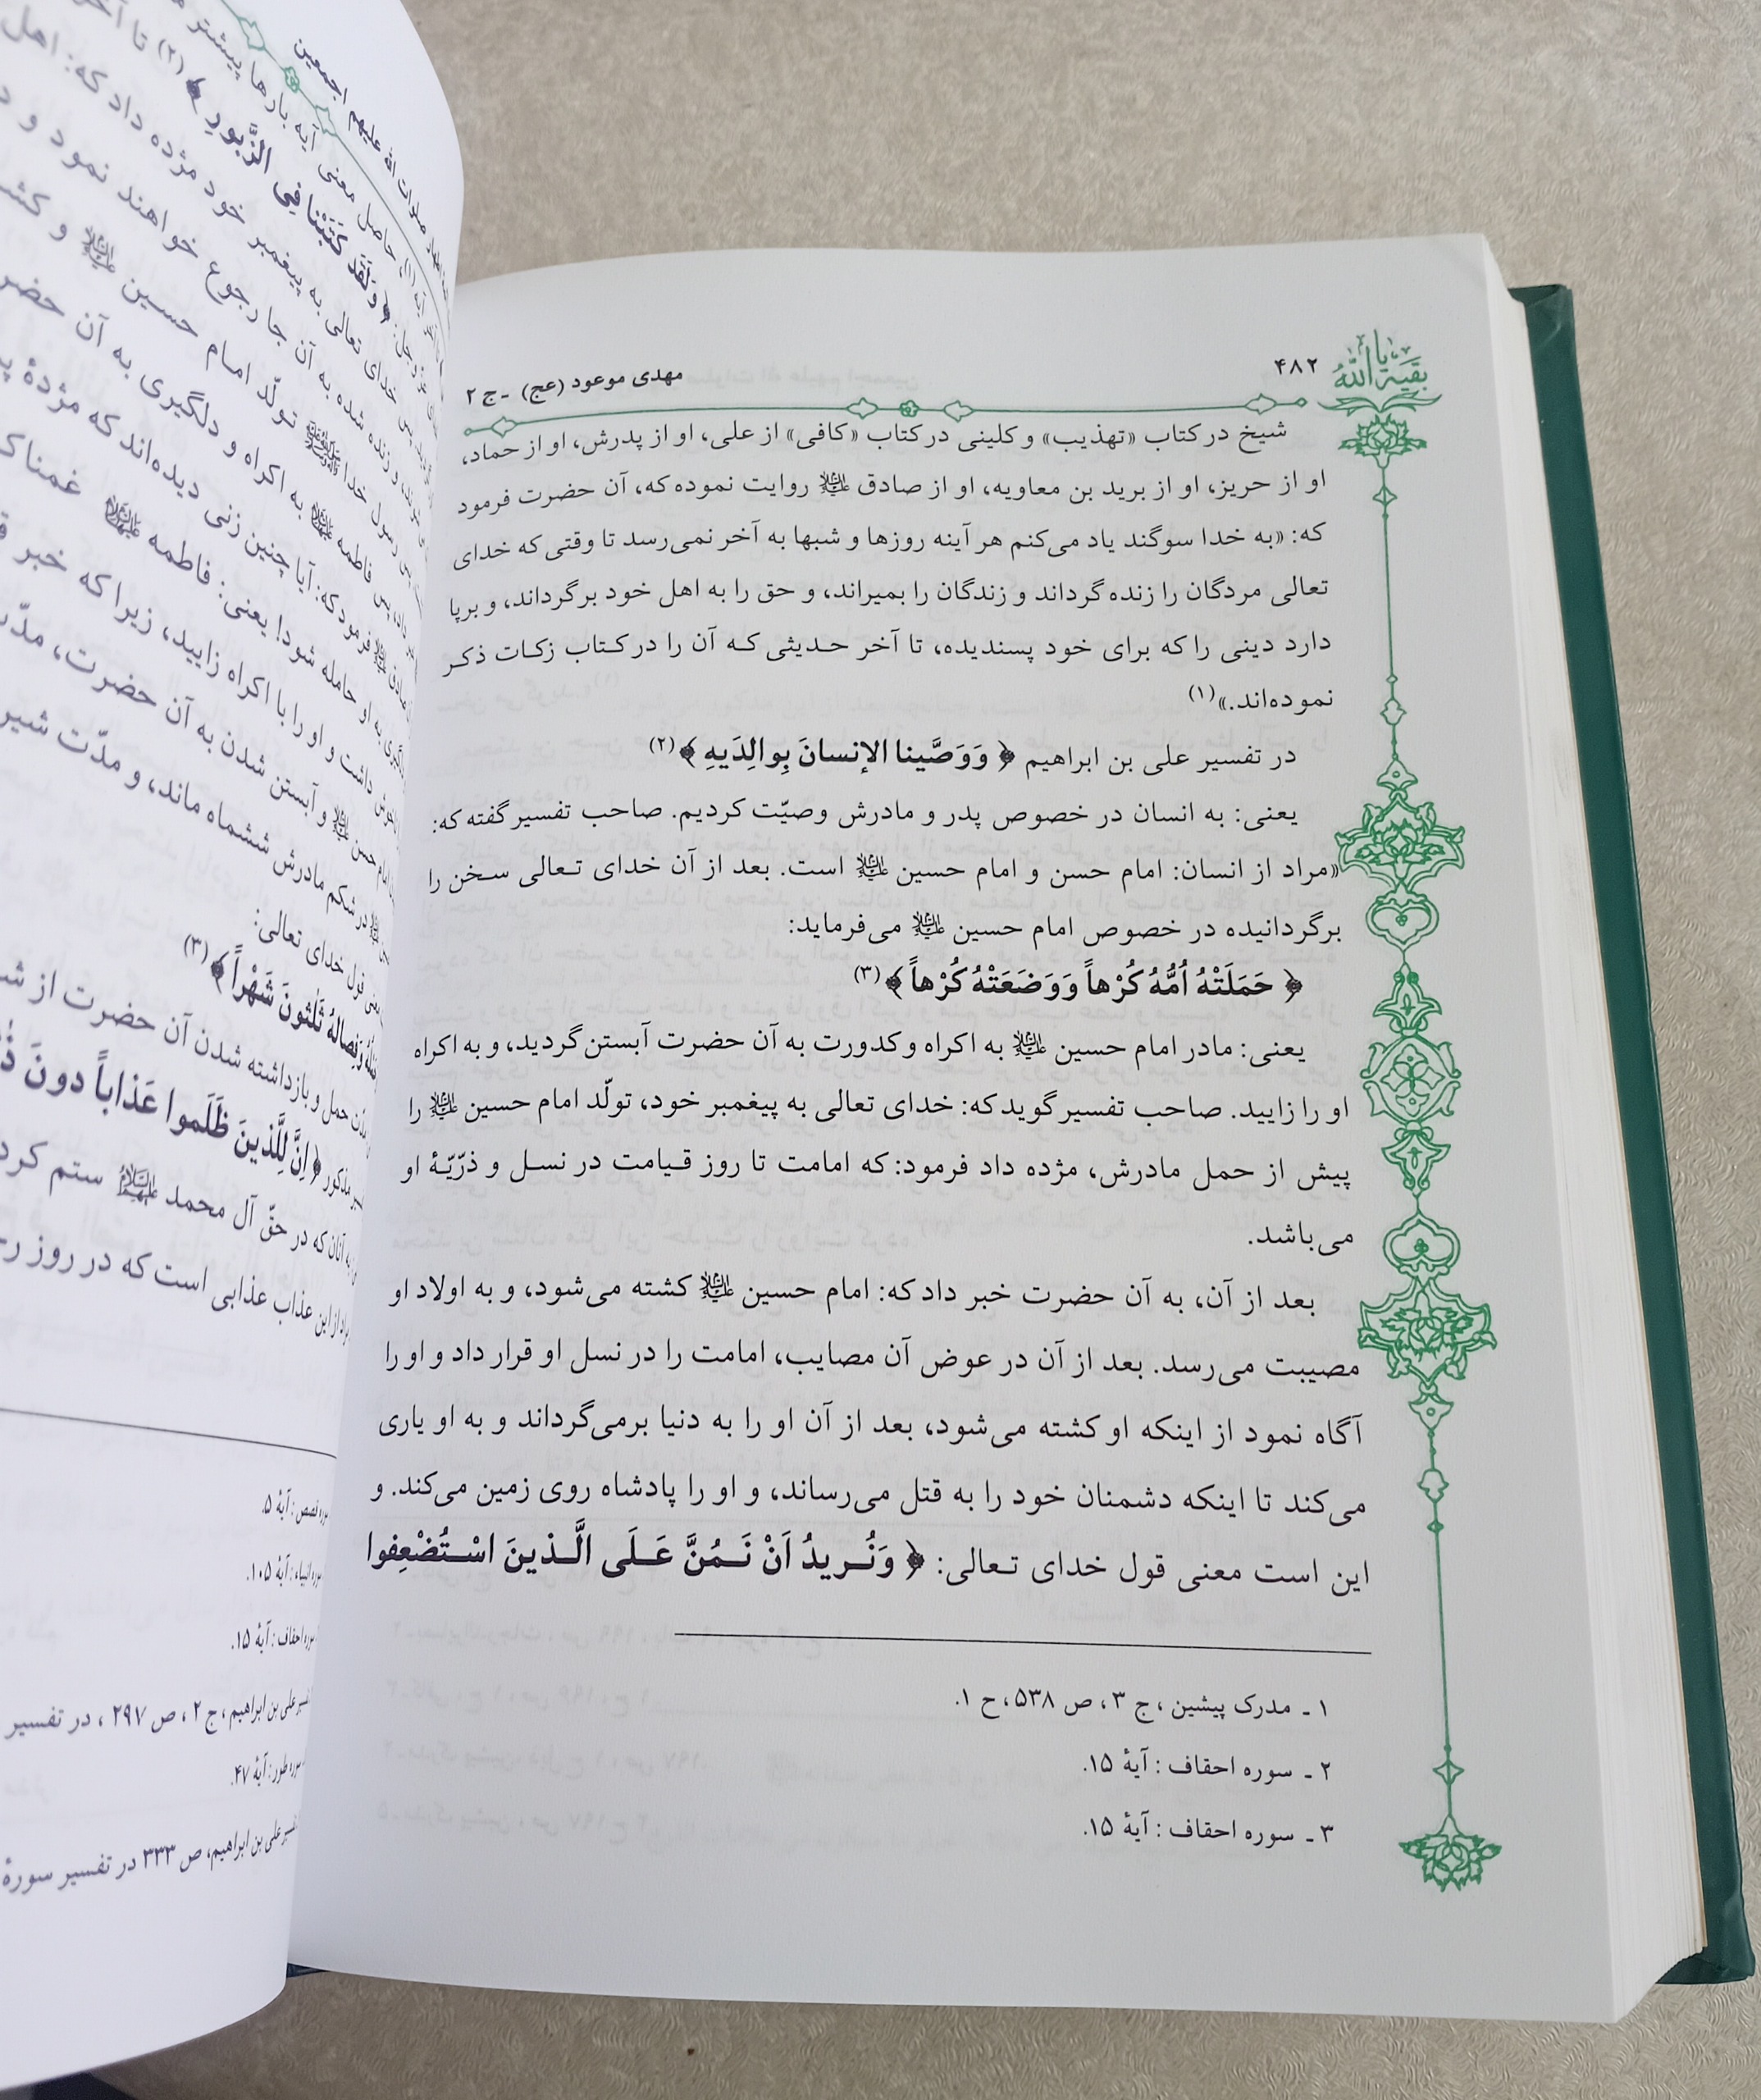 یا بقیة الله
۴۸۲
مهدی موعود (عج) - ج ۲
شیخ در کتاب «تهذیب» و کلینی در کتاب «کافی» از علی، او از پدرش، او از حماد،
او از حریز، او از برید بن معاویه، او از صادق علیه‌السلام روایت نموده که، آن حضرت فرمود
که: «به خدا سوگند یاد می‌کنم هر آینه روزها و شبها به آخر نمی‌رسد تا وقتی که خدای
تعالی مردگان را زنده گرداند و زندگان را بمیراند، و حق را به اهل خود برگرداند، و برپا
دارد دینی را که برای خود پسندیده، تا آخر حدیثی که آن را در کتاب زکات ذکر
نموده‌اند.»(۱)
در تفسیر علی بن ابراهیم ﴿ وَوَصَّینا الإنسانَ بِوالِدَیهِ ﴾(۲)
یعنی: به انسان در خصوص پدر و مادرش وصیّت کردیم. صاحب تفسیر گفته که:
«مراد از انسان: امام حسن و امام حسین علیه‌السلام است. بعد از آن خدای تعالی سخن را
برگردانیده در خصوص امام حسین علیه‌السلام می‌فرماید:
﴿ حَمَلَتْهُ اُمُّهُ کُرْهاً وَوَضَعَتْهُ کُرْهاً ﴾(۳)
یعنی: مادر امام حسین علیه‌السلام به اکراه و کدورت به آن حضرت آبستن گردید، و به اکراه
او را زایید. صاحب تفسیر گوید که: خدای تعالی به پیغمبر خود، تولّد امام حسین علیه‌السلام را
پیش از حمل مادرش، مژده داد فرمود: که امامت تا روز قیامت در نسل و ذرّیّۀ او
می‌باشد.
بعد از آن، به آن حضرت خبر داد که: امام حسین علیه‌السلام کشته می‌شود، و به اولاد او
مصیبت می‌رسد. بعد از آن در عوض آن مصایب، امامت را در نسل او قرار داد و او را
آگاه نمود از اینکه او کشته می‌شود، بعد از آن او را به دنیا برمی‌گرداند و به او یاری
می‌کند تا اینکه دشمنان خود را به قتل می‌رساند، و او را پادشاه روی زمین می‌کند. و
این است معنی قول خدای تعالی: ﴿ وَنُریدُ اَنْ نَمُنَّ عَلَی الَّذینَ اسْتُضْعِفوا
۱ ـ مدرک پیشین ، ج ۳ ، ص ۵۳۸ ، ح ۱.
۲ ـ سوره احقاف : آیۀ ۱۵.
۳ ـ سوره احقاف : آیۀ ۱۵.
صلوات الله علیهم اجمعین
حاصل معنی آیه بارها پیشتر
﴿وَلَقَد کَتَبْنا فِی الزَّبورِ ﴾(۲) تا
خدای تعالی به پیغمبر خود مژده داد که: اهل
زنده شده به آن جا رجوع خواهند نمود و
رسول خدا تولّد امام حسین علیه‌السلام و
فاطمه به اکراه و دلگیری به آن
فرمود که: آیا چنین زنی دیده‌اند که مژدۀ
به او حامله شود! یعنی: فاطمه غمناک
داشت و او را با اکراه زایید، زیرا که خبر
امام حسن علیه‌السلام و آبستن شدن به آن حضرت،
در شکم مادرش ششماه ماند، و مدّت
قول خدای تعالی:
وَفِصالُهُ ثَلٰثونَ شَهْراً﴾(۳)
حمل و بازداشته شدن آن حضرت از
مذکور ﴿اِنَّ لِلَّذینَ ظَلَموا عَذاباً دونَ
آنان که در حقّ آل محمد ستم
از این عذاب عذابی است که در روز
قصص : آیۀ ۵.
انبیاء : آیۀ ۱۰۵.
سوره احقاف : آیۀ ۱۵.
علی بن ابراهیم ، ج ۲ ، ص ۲۹۷ ، در تفسیر
سوره طور : آیۀ ۴۷.
علی بن ابراهیم، ص ۳۳۳ در تفسیر سورۀ